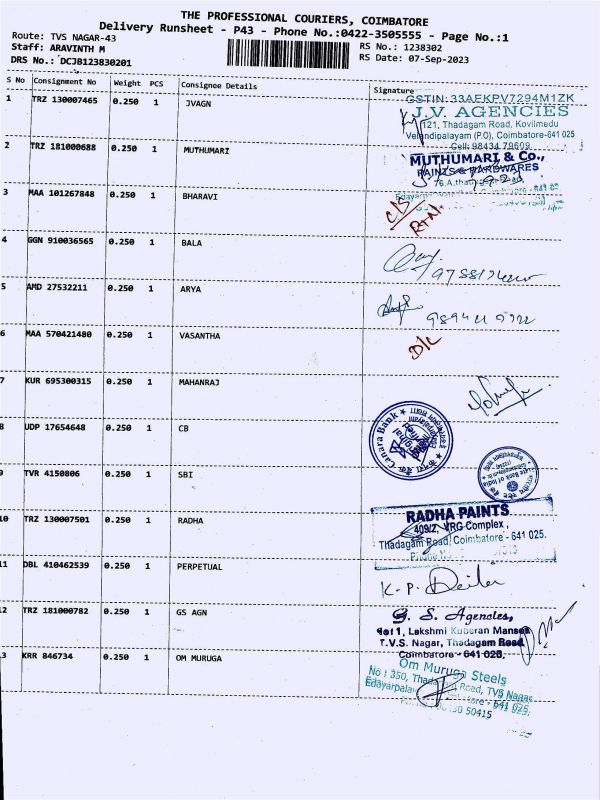 THE PROFESSIONAL COURIERS, COIMBATORE
Delivery Runsheet - P43 - Phone No.:0422-3505555 - Page No.:1
Route: TVS NAGAR-43
Staff: ARAVINTH M
DRS No.: DCJB123830201
RS No.: 1238302
RS Date: 07-Sep-2023
S No Consignment No Weight PCS Consignee Details Signature
1 TRZ 130007465 0.250 1 JVAGN
GSTIN:33AEKPV7294M1ZK
J.V. AGENCIES
121, Thadagam Road, Kovilmedu
Velandipalayam (P.O), Coimbatore-641 025
Cell: 98434 79609
2 TRZ 181000688 0.250 1 MUTHUMARI
MUTHUMARI & Co.,
PAINTS & HARDWARES
3 MAA 101267848 0.250 1 BHARAVI
4 GGN 910036565 0.250 1 BALA
5 AMD 27532211 0.250 1 ARYA
6 MAA 570421480 0.250 1 VASANTHA
D/L
7 KUR 695300315 0.250 1 MAHANRAJ
8 UDP 17654648 0.250 1 CB
Canara Bank
9 TVR 4150806 0.250 1 SBI
State Bank of India
10 TRZ 130007501 0.250 1 RADHA
RADHA PAINTS
409/2, VRG Complex,
Thadagam Road, Coimbatore - 641 025.
11 DBL 410462539 0.250 1 PERPETUAL
K. P.
12 TRZ 181000782 0.250 1 GS AGN
G. S. Agencies,
1, Lakshmi Kuberan
T.V.S. Nagar, Thadagam Road
Coimbatore - 641 025.
13 KRR 846734 0.250 1 OM MURUGA
Om Muruga Steels
No : 350, Road, TVS Nagar
641 025.
50415